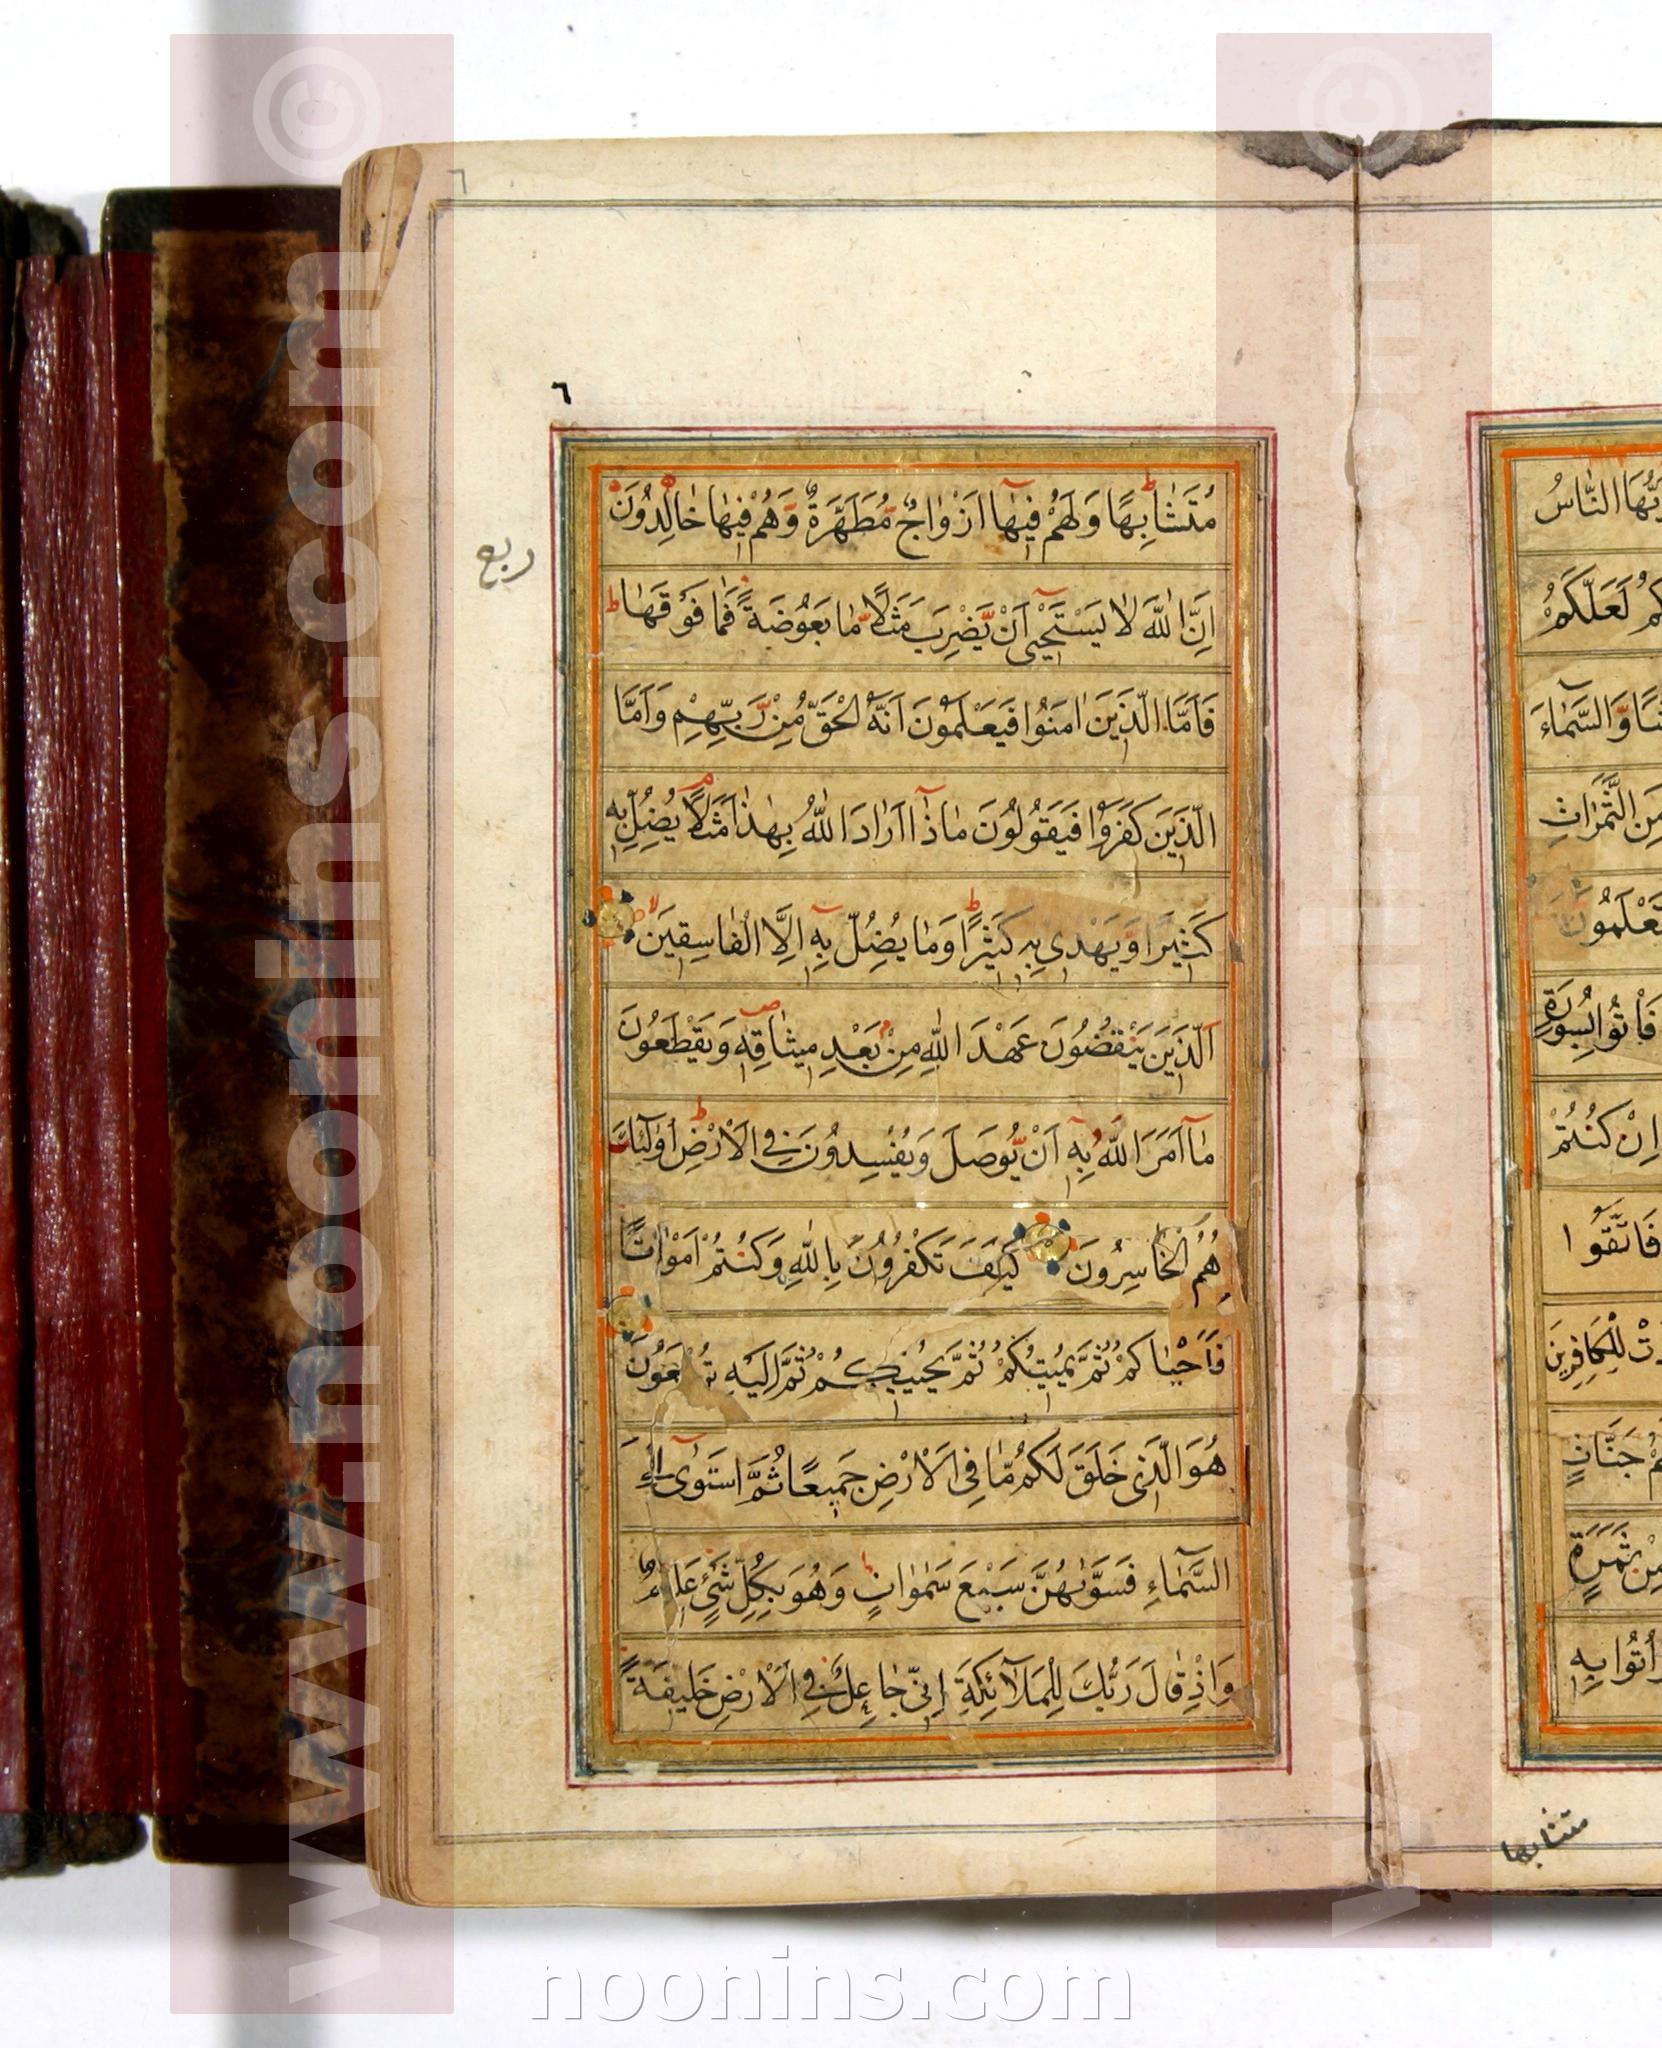 ٦
٦
ربع
مُتَشَابِهًا وَلَهُمْ فِيهَا اَزْوَاجٌ مُطَهَّرَةٌ وَهُمْ فِيهَا خَالِدُونَ
اِنَّ اللّٰهَ لَا يَسْتَحْيٖى اَنْ يَضْرِبَ مَثَلًا مَا بَعُوضَةً فَمَا فَوْقَهَا ط
فَاَمَّا الَّذِينَ اٰمَنُوا فَيَعْلَمُونَ اَنَّهُ الْحَقُّ مِنْ رَبِّهِمْ وَاَمَّا
الَّذِينَ كَفَرُوا فَيَقُولُونَ مَاذَا اَرَادَ اللّٰهُ بِهٰذَا مَثَلًا م يُضِلُّ بِهِ
كَثِيرًا وَيَهْدِي بِهِ كَثِيرًا ط وَمَا يُضِلُّ بِهِ اِلَّا الْفَاسِقِينَ لا
اَلَّذِينَ يَنْقُضُونَ عَهْدَ اللّٰهِ مِنْ بَعْدِ مِيثَاقِهِ ص وَيَقْطَعُونَ
مَا اَمَرَ اللّٰهُ بِهِ اَنْ يُوصَلَ وَيُفْسِدُونَ فِي الْاَرْضِ ط اُولٰئِكَ
هُمُ الْخَاسِرُونَ كَيْفَ تَكْفُرُونَ بِاللّٰهِ وَكُنْتُمْ اَمْوَاتًا
فَاَحْيَاكُمْ ثُمَّ يُمِيتُكُمْ ثُمَّ يُحْيِيكُمْ ثُمَّ اِلَيْهِ تُرْجَعُونَ
هُوَ الَّذِي خَلَقَ لَكُمْ مَا فِي الْاَرْضِ جَمِيعًا ثُمَّ اسْتَوٰى اِلَى
السَّمَاءِ فَسَوّٰيهُنَّ سَبْعَ سَمٰوَاتٍ ط وَهُوَ بِكُلِّ شَيْءٍ عَلِيمٌ
وَاِذْ قَالَ رَبُّكَ لِلْمَلَائِكَةِ اِنِّي جَاعِلٌ فِي الْاَرْضِ خَلِيفَةً
النَّاسُ
لَعَلَّكُمْ
وَالسَّمَاءَ
مِنَ الثَّمَرَاتِ
تَعْلَمُونَ
فَأْتُوا بِسُورَةٍ
اِنْ كُنْتُمْ
فَاتَّقُوا
لِلْكَافِرِينَ
جَنَّاتٍ
مِنْ ثَمَرَةٍ
اُتُوا بِهِ
متشابها
www.noonins.com ©
www.noonins.com ©
noonins.com